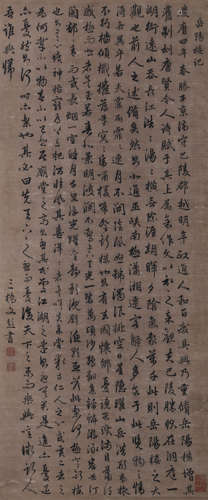 岳陽樓記
慶曆四年春滕子京謫守巴陵郡越明年政通人和百廢具興乃重脩岳陽樓增其
舊制刻唐賢今人詩賦于其上屬予作文以記之予觀夫巴陵勝狀在洞庭一
湖銜遠山吞長江浩浩湯湯橫無際涯朝暉夕陰氣象萬千此則岳陽樓之大
觀也前人之述備矣然則北通巫峽南極瀟湘遷客騷人多會于此覽物之情
得無異乎若夫霪雨霏霏連月不開陰風怒號濁浪排空日星隱曜山岳潛形商旅
不行檣傾楫摧薄暮冥冥虎嘯猿啼登斯樓也則有去國懷鄉憂讒畏譏滿目蕭然
感極而悲者矣至若春和景明波瀾不驚上下天光一碧萬頃沙鷗翔集錦鱗游泳岸芷汀
蘭郁郁青青而或長煙一空皓月千里浮光躍金靜影沉璧漁歌互答此樂何極登斯樓也則
有心曠神怡寵辱皆忘把酒臨風其喜洋洋者矣嗟夫予嘗求古仁人之心或異二者之
為何哉不以物喜不以己悲居廟堂之高則憂其民處江湖之遠則憂其君是進亦憂退
亦憂然則何時而樂耶其必曰先天下之憂而憂後天下之樂而樂歟噫微斯人
吾誰與歸
三橋文彭書